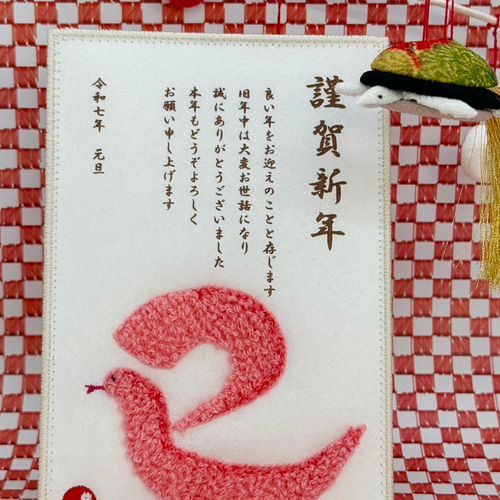 謹賀新年
良い年をお迎えのことと存じます
旧年中は大変お世話になり
誠にありがとうございました
本年もどうぞよろしく
お願い申し上げます
令和七年 元旦